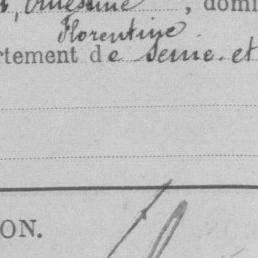 Ernestine, domi
Florentine
rtement de Seine-et
ON.